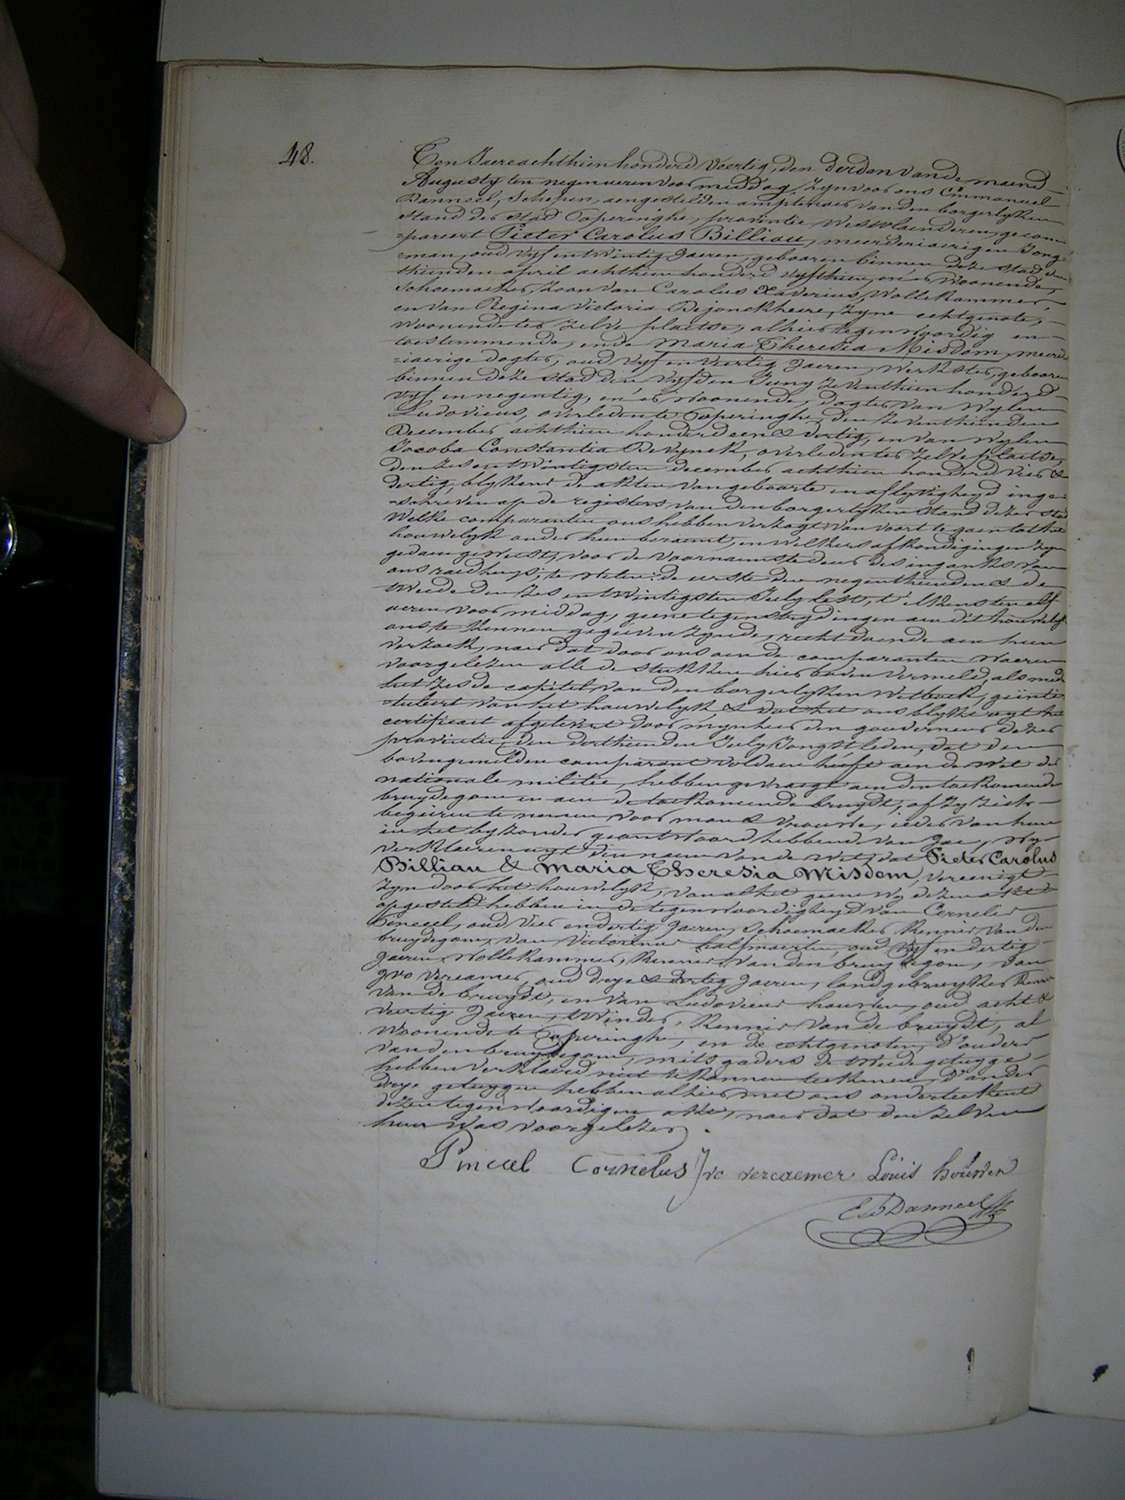 48.
Ten Jaere achthien honderd Veertig, den derden van de maend
Augusty ten negen ueren voor middag, Zyn voor ons Emmanuel
Danneel, Schepen, aengestelden amptenaer van den borgerlyken
Stand der Stad Poperinghe, provintie Westvlaenderen, gecom=
=pareert Pieter Carolus Billiau, meerderiaerigen Jong=
=man, oud Vyf en twintig Jaeren, gebooren binnen deze Stad den
thienden april achthien honderd vyfthien, en er Woonende,
Schoemaeker, Zoon van Carolus Xaverius, Wollekammer
en van Regina Victoria Dejonckheere, Zyne echtgenote,
Woonende ter Zelve plaetse, alhier tegenwoordig en
toestemmende, ende Maria Theresia Misdom, meerder
=iaerige dogter, oud Vyf en Veertig Jaeren, Werkster, gebooren
binnen deze Stad den Vyfden Juny Zeventhien honderd
Vyf en negentig, en er Woonende, dogter van Wylen
Ludovicus, overleden te Poperinghe, den Zeventhienden
December achthien honderd een & dertig, en van Wylen
Jacoba Constantia Devynck, overleden ter Zelve plaetse,
den Zes en twintigsten december achthien honderd vier &
dertig, blykens de akten van geboorte en aflyvigheyd inge=
=schreven op de registers van den borgerlyken Stand dezer Stad
Welke comparanten ons hebben verzogt van voort te gaen tot het
houwelyk onder hun beraemt, en Welkers afkondigingen Zyn
gedaen geweest, voor de Voornaemste deur des ingangs van
ons raedhuys, te Weten: de eerste den negenthienden & de
tweede den Zes en twintigsten July lest, t'elkens ten elf
ueren voor middag, geene tegenstrydingen aen dit houwelyk
ons te Kennen gegeven Zynde, recht doende aen hun
Verzoek, naer dat door ons aen de comparanten Waeren
voorgelezen alle de Stukken hier boven Vermeld, als mede
het Zesde capitel van den borgerlyken Wetboek, geinti=
=tuleert van het houwelyk & dat het ons blykt uyt het
certificaet afgelevert door mynheer den gouverneur dezer
provintie, den derthienden July Jongstleden, dat den
bovengemelden comparant voldaen heeft aen de Wet der
nationale militie, hebben gevraegt aen den toekomende
bruydegom en aen de toekomende bruydt, of Zy Zich
begeeren te nemen voor man & vrouwe, ieder van hun
in het byzonder geantwoord hebbende van Jae, Wy
verklaeren uyt den naem van de Wet, dat Pieter Carolus
Billiau & Maria Theresia Misdom, vereenigt
Zyn door het houwelyk, van al het gene wy dezen akt
opgesteld hebben in de tegenwoordigheyd van Cornelus
Pineel, oud vier en dertig Jaeren, Schoemaeker, Kennis van den
bruydegom, van Victorinus oud Vyf en dertig
Jaeren, Wollekammer, Kennis van den bruydegom, van
Ivo Vercamer, oud drye & dertig Jaeren, landgebruyker, Kennis
van de bruydt, en van Ludovicus Housen, oud acht &
veertig Jaeren, Winder, Kennis van de bruydt, al
Woonende te Poperinghe, en de echtgenoten, d'ouders
van den bruydegom, mitsgaders de tweede getuyge
hebben verklaerd niet te Konnen teekenen, d'ander
drye getuygen hebben alhier met ons onderteekent
dezen tegenwoordigen akt, naer dat den Zelven
hun Was voorgelezen.
Pineel Cornelus Ivo vercaemer Louis housen
E D Danneel